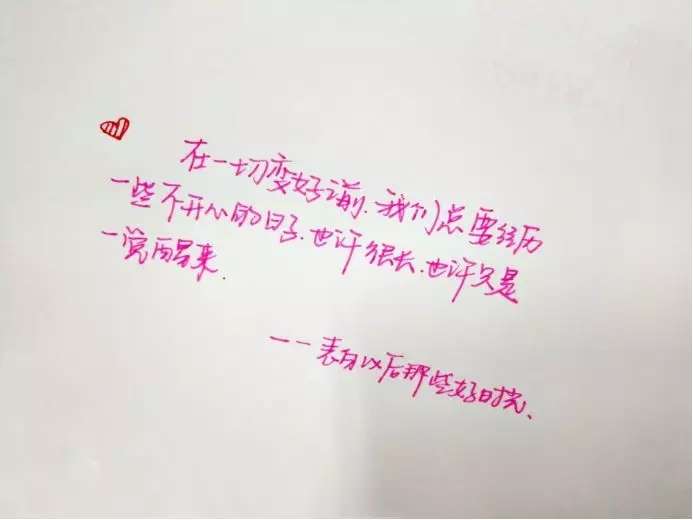 在一切变好之前,我们总要经历
一些不开心的日子,也许很长,也许只是
一觉醒来.
——表白以后那些好时光、